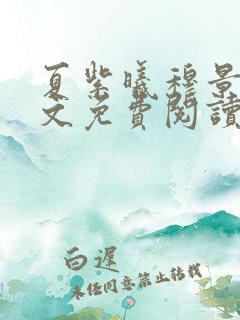 夏紫曦穆景
文免費閱讀
白遲
未经同意禁止转载